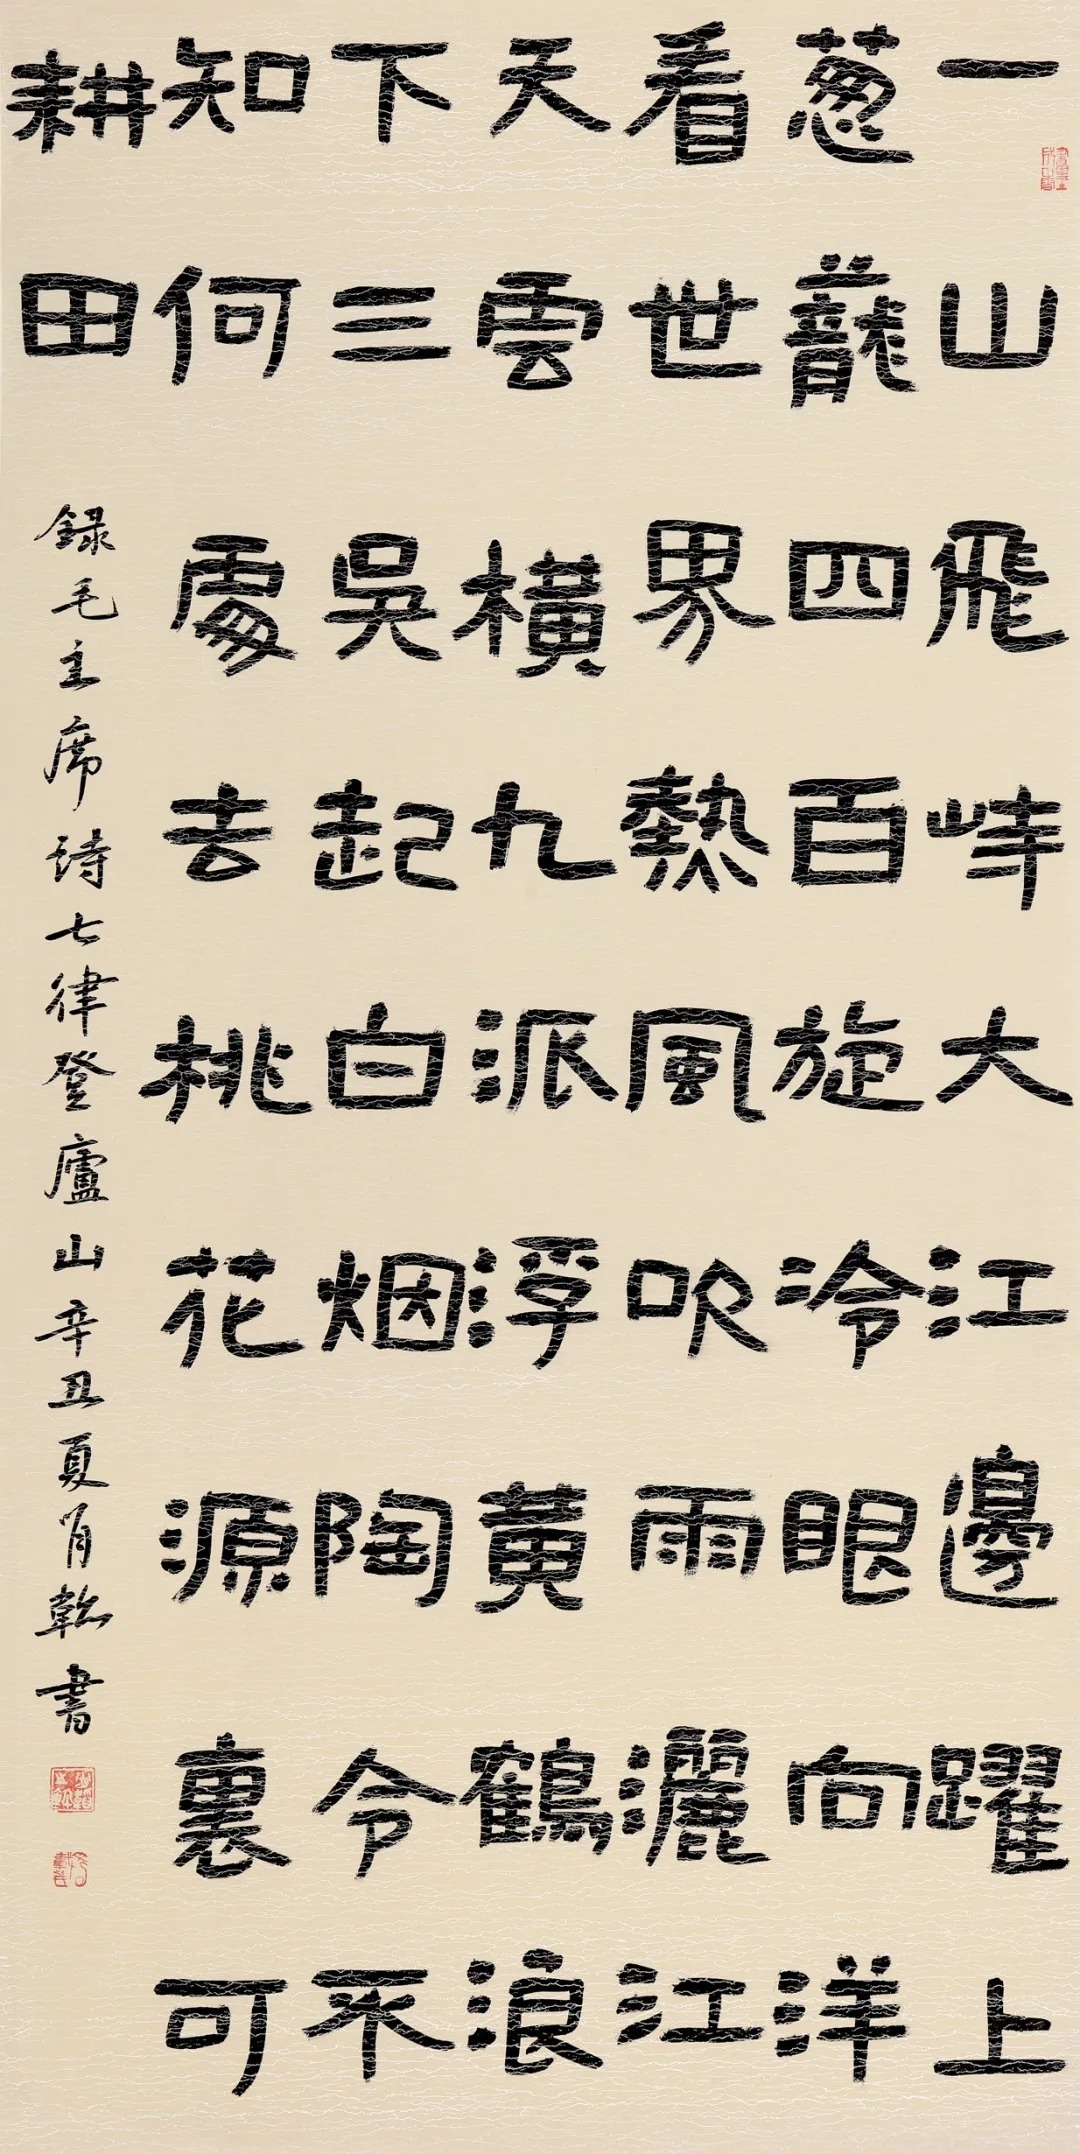 一山飛峙大江邊躍上
葱蘢四百旋冷眼向洋
看世界熱風吹雨灑江
天雲橫九派浮黄鶴浪
下三吳起白烟陶令不
知何處去桃花源裏可
耕田
録毛主席詩七律登廬山辛丑夏肖乾書